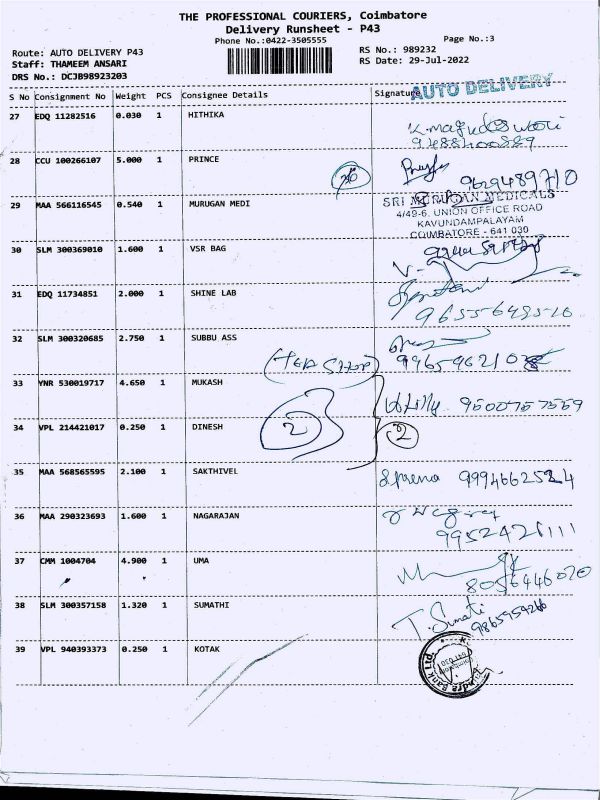 THE PROFESSIONAL COURIERS, Coimbatore
Delivery Runsheet - P43
Phone No.:0422-3505555
Page No.:3
Route: AUTO DELIVERY P43
RS No.: 989232
Staff: THAMEEM ANSARI
RS Date: 29-Jul-2022
DRS No.: DCJB98923203
AUTO DELIVERY
S No Consignment No Weight PCS Consignee Details Signature
27 EDQ 11282516 0.030 1 HITHIKA
28 CCU 100266107 5.000 1 PRINCE
9629489710
29 MAA 566116545 0.540 1 MURUGAN MEDI
SRI MURUGAN MEDICALS
4/49-6, UNION OFFICE ROAD
KAVUNDAMPALAYAM
COIMBATORE - 641 030
30 SLM 300369010 1.600 1 VSR BAG
31 EDQ 11734851 2.000 1 SHINE LAB
32 SLM 300320685 2.750 1 SUBBU ASS
(TEA SHOP)
33 YNR 530019717 4.650 1 MUKASH
9500757559
34 VPL 214421017 0.250 1 DINESH
2
2
35 MAA 568565595 2.100 1 SAKTHIVEL
S.prema 9994662524
36 MAA 290323693 1.600 1 NAGARAJAN
37 CMM 1004704 4.900 1 UMA
8056446020
38 SLM 300357158 1.320 1 SUMATHI
T. Sumati
39 VPL 940393373 0.250 1 KOTAK